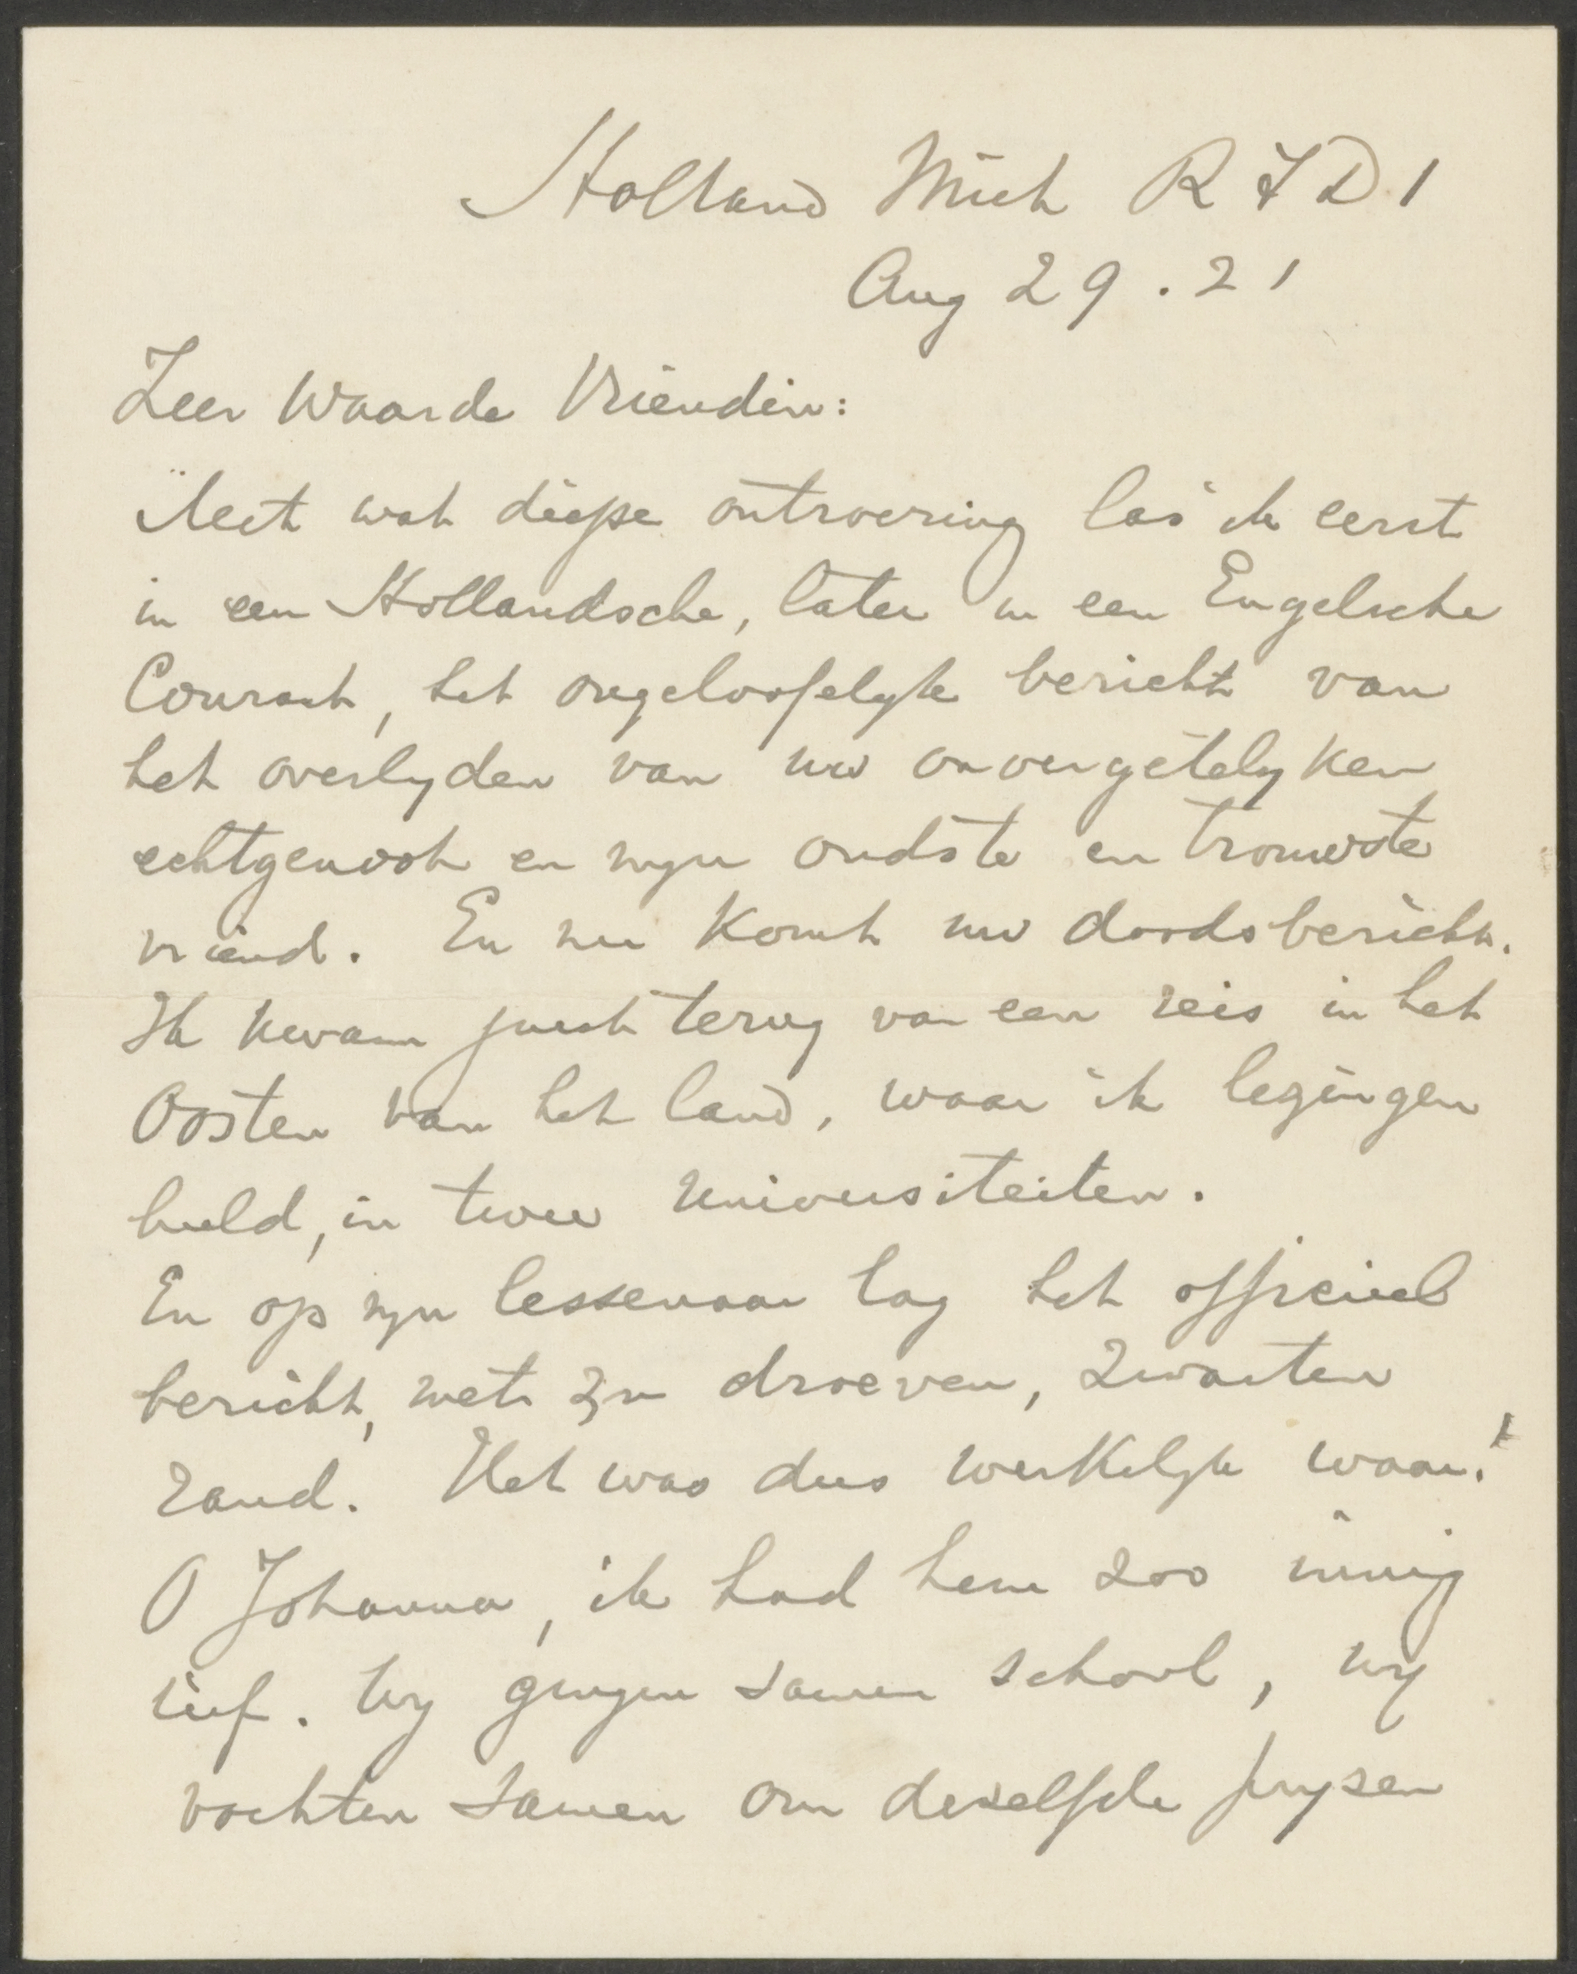 Holland Mich R F D 1
Aug 29 . 21
Zeer Waarde Vriendin:
Met wat diepe ontroering las ik eerst
in een Hollandsche, later in een Engelsche
Courant, het ongeloofelyke bericht van
het overlyden van uw onvergetelyken
echtgenoot en myn oudste en trouwste
vriend. En nu komt uw doodsbericht.
Ik kwam juist terug van een reis in het
Oosten van het land, waar ik lezingen
hield, in twee Universiteiten.
En op myn lessenaar lag het officieel
bericht, met zyn droeven, zwarten
rand. Het was dus werkelyk waar!
O Johanna, ik had hem zoo innig
lief. Wy gingen samen school, wy
vochten samen om dezelfde pryzen